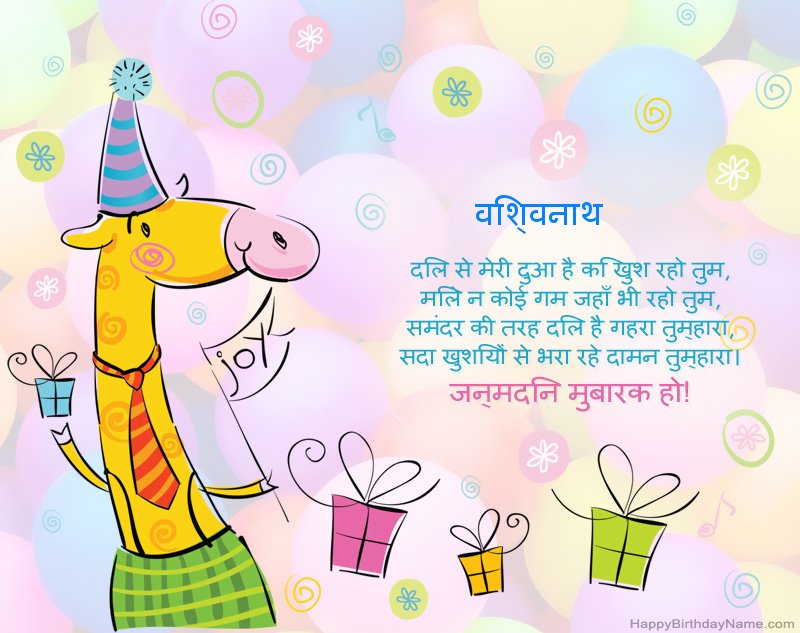 विश्वनाथ
दिल से मेरी दुआ है कि खुश रहो तुम,
मिले न कोई गम जहाँ भी रहो तुम,
समंदर की तरह दिल है गहरा तुम्हारा,
सदा खुशियों से भरा रहे दामन तुम्हारा।
जन्मदिन मुबारक हो!
joy
HappyBirthdayName.com